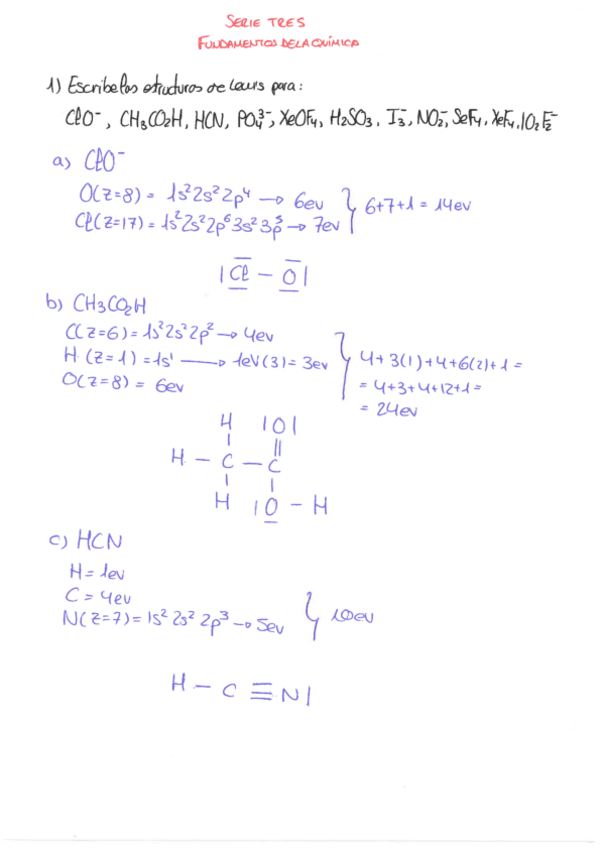 SERIE TRES
FUNDAMENTOS DE LA QUÍMICA
1) Escribe las estructuras de Lewis para:
ClO⁻, CH₃CO₂H, HCN, PO₄³⁻, XeOF₄, H₂SO₃, I₃⁻, NO₂⁻, SeF₄, XeF₄, IO₂F₂⁻
a) ClO⁻
O(Z=8) = 1s² 2s² 2p⁴ → 6ev
Cl(Z=17) = 1s² 2s² 2p⁶ 3s² 3p⁵ → 7ev
} 6+7+1 = 14ev
|Cl – O|
b) CH₃CO₂H
C(Z=6) = 1s² 2s² 2p² → 4ev
H (Z=1) = 1s¹ → 1eV(3) = 3ev
O(Z=8) = 6ev
} 4+3(1)+4+6(2)+1 =
= 4+3+4+12+1 =
= 24ev
H |O|
H – C – C
H |O – H
c) HCN
H = 1ev
C = 4ev
N(Z=7) = 1s² 2s² 2p³ → 5ev
} 10ev
H – C ≡ N|